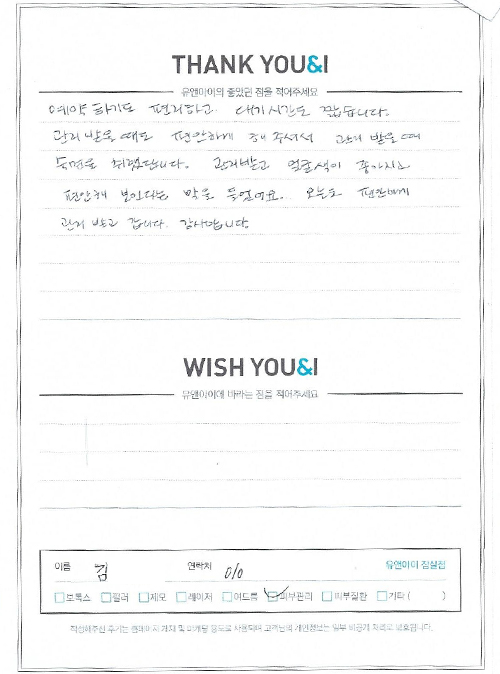 THANK YOU&I
유앤아이의 좋았던 점을 적어주세요
예약 하기도 편리하고 대기시간도 짧습니다.
관리 받을 때도 편안하게 해 주셔서 관리 받을 때
숙면을 취했답니다. 관리받고 얼굴색이 좋아지고
편안해 보인다는 말을 들었어요. 오늘도 편안하게
관리 받고 갑니다. 감사합니다.
WISH YOU&I
유앤아이에 바라는 점을 적어주세요
이름 김 연락처 010 유앤아이 잠실점
보톡스 필러 제모 레이저 여드름 피부관리 피부질환 기타 ( )
작성해주신 후기는 홈페이지 게재 및 마케팅 용도로 사용되며 고객님의 개인정보는 일부 비공개 처리로 보호됩니다.